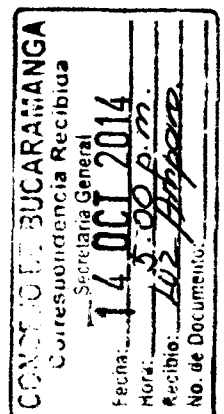 CONCEJO DE BUCARAMANGA
Correspondencia Recibida
Secretaria General
Fecha: 14 OCT 2014
Hora: 5:00 p.m.
Recibio: Luz Amparo
No. de Documento: